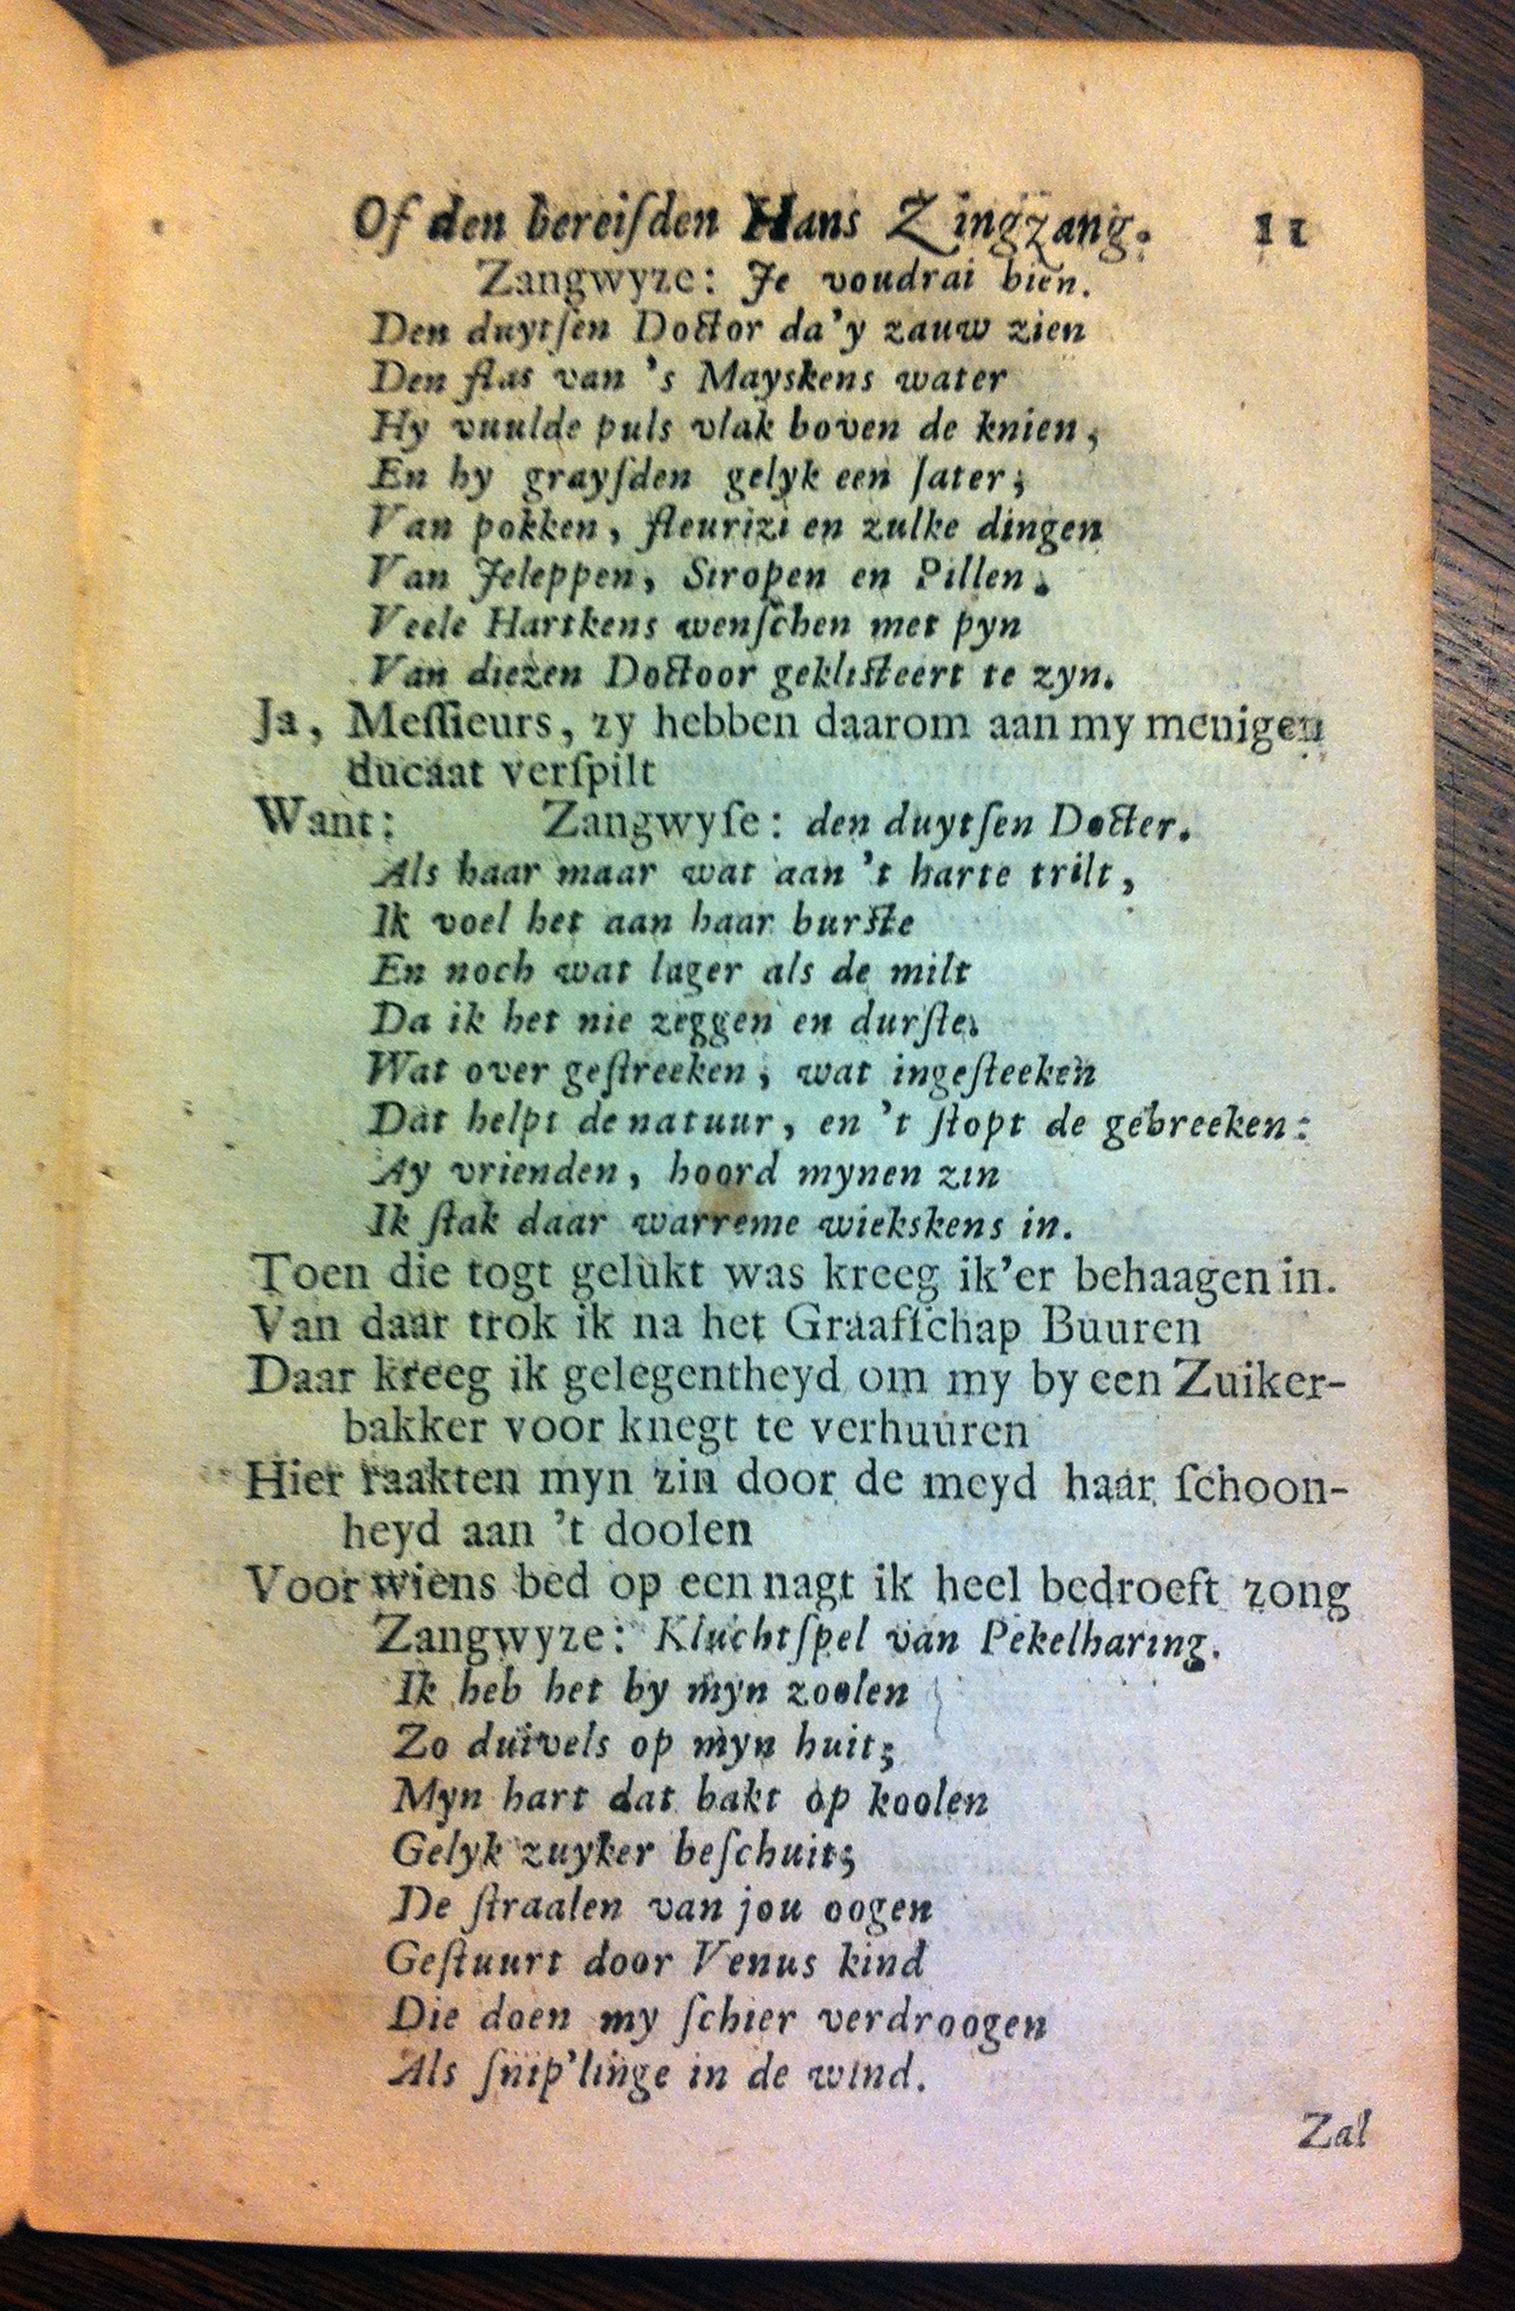 Of den bereiſden Hans Zingzang. 11
Zangwyze: Je voudrai bien.
Den duytſen Doctor da'y zauw zien
Den flas van 's Mayskens water
Hy vuulde puls vlak boven de knien,
En hy grayſden gelyk een ſater;
Van pokken, fleurizi en zulke dingen
Van Jeleppen, Siropen en Pillen.
Veele Hartkens wenſchen met pyn
Van diezen Doctoor gekliſteert te zyn.
Ja, Meſſieurs, zy hebben daarom aan my menigen
ducaat verſpilt
Want: Zangwyſe: den duytſen Docter.
Als haar maar wat aan 't harte trilt,
Ik voel het aan haar burſte
En noch wat lager als de milt
Da ik het nie zeggen en durſte.
Wat over geſtreeken, wat ingeſteeken
Dat helpt de natuur, en 't ſtopt de gebreeken:
Ay vrienden, hoord mynen zin
Ik ſtak daar warreme wiekskens in.
Toen die togt gelukt was kreeg ik'er behaagen in.
Van daar trok ik na het Graafſchap Buuren
Daar kreeg ik gelegentheyd om my by een Zuiker-
bakker voor knegt te verhuuren
Hier raakten myn zin door de meyd haar ſchoon-
heyd aan 't doolen
Voor wiens bed op een nagt ik heel bedroeft zong
Zangwyze: Kluchtſpel van Pekelharing.
Ik heb het by myn zoolen
Zo duivels op myn huit;
Myn hart dat bakt op koolen
Gelyk zuyker beſchuit;
De ſtraalen van jou oogen
Geſtuurt door Venus kind
Die doen my ſchier verdroogen
Als ſnip'linge in de wind.
Zal